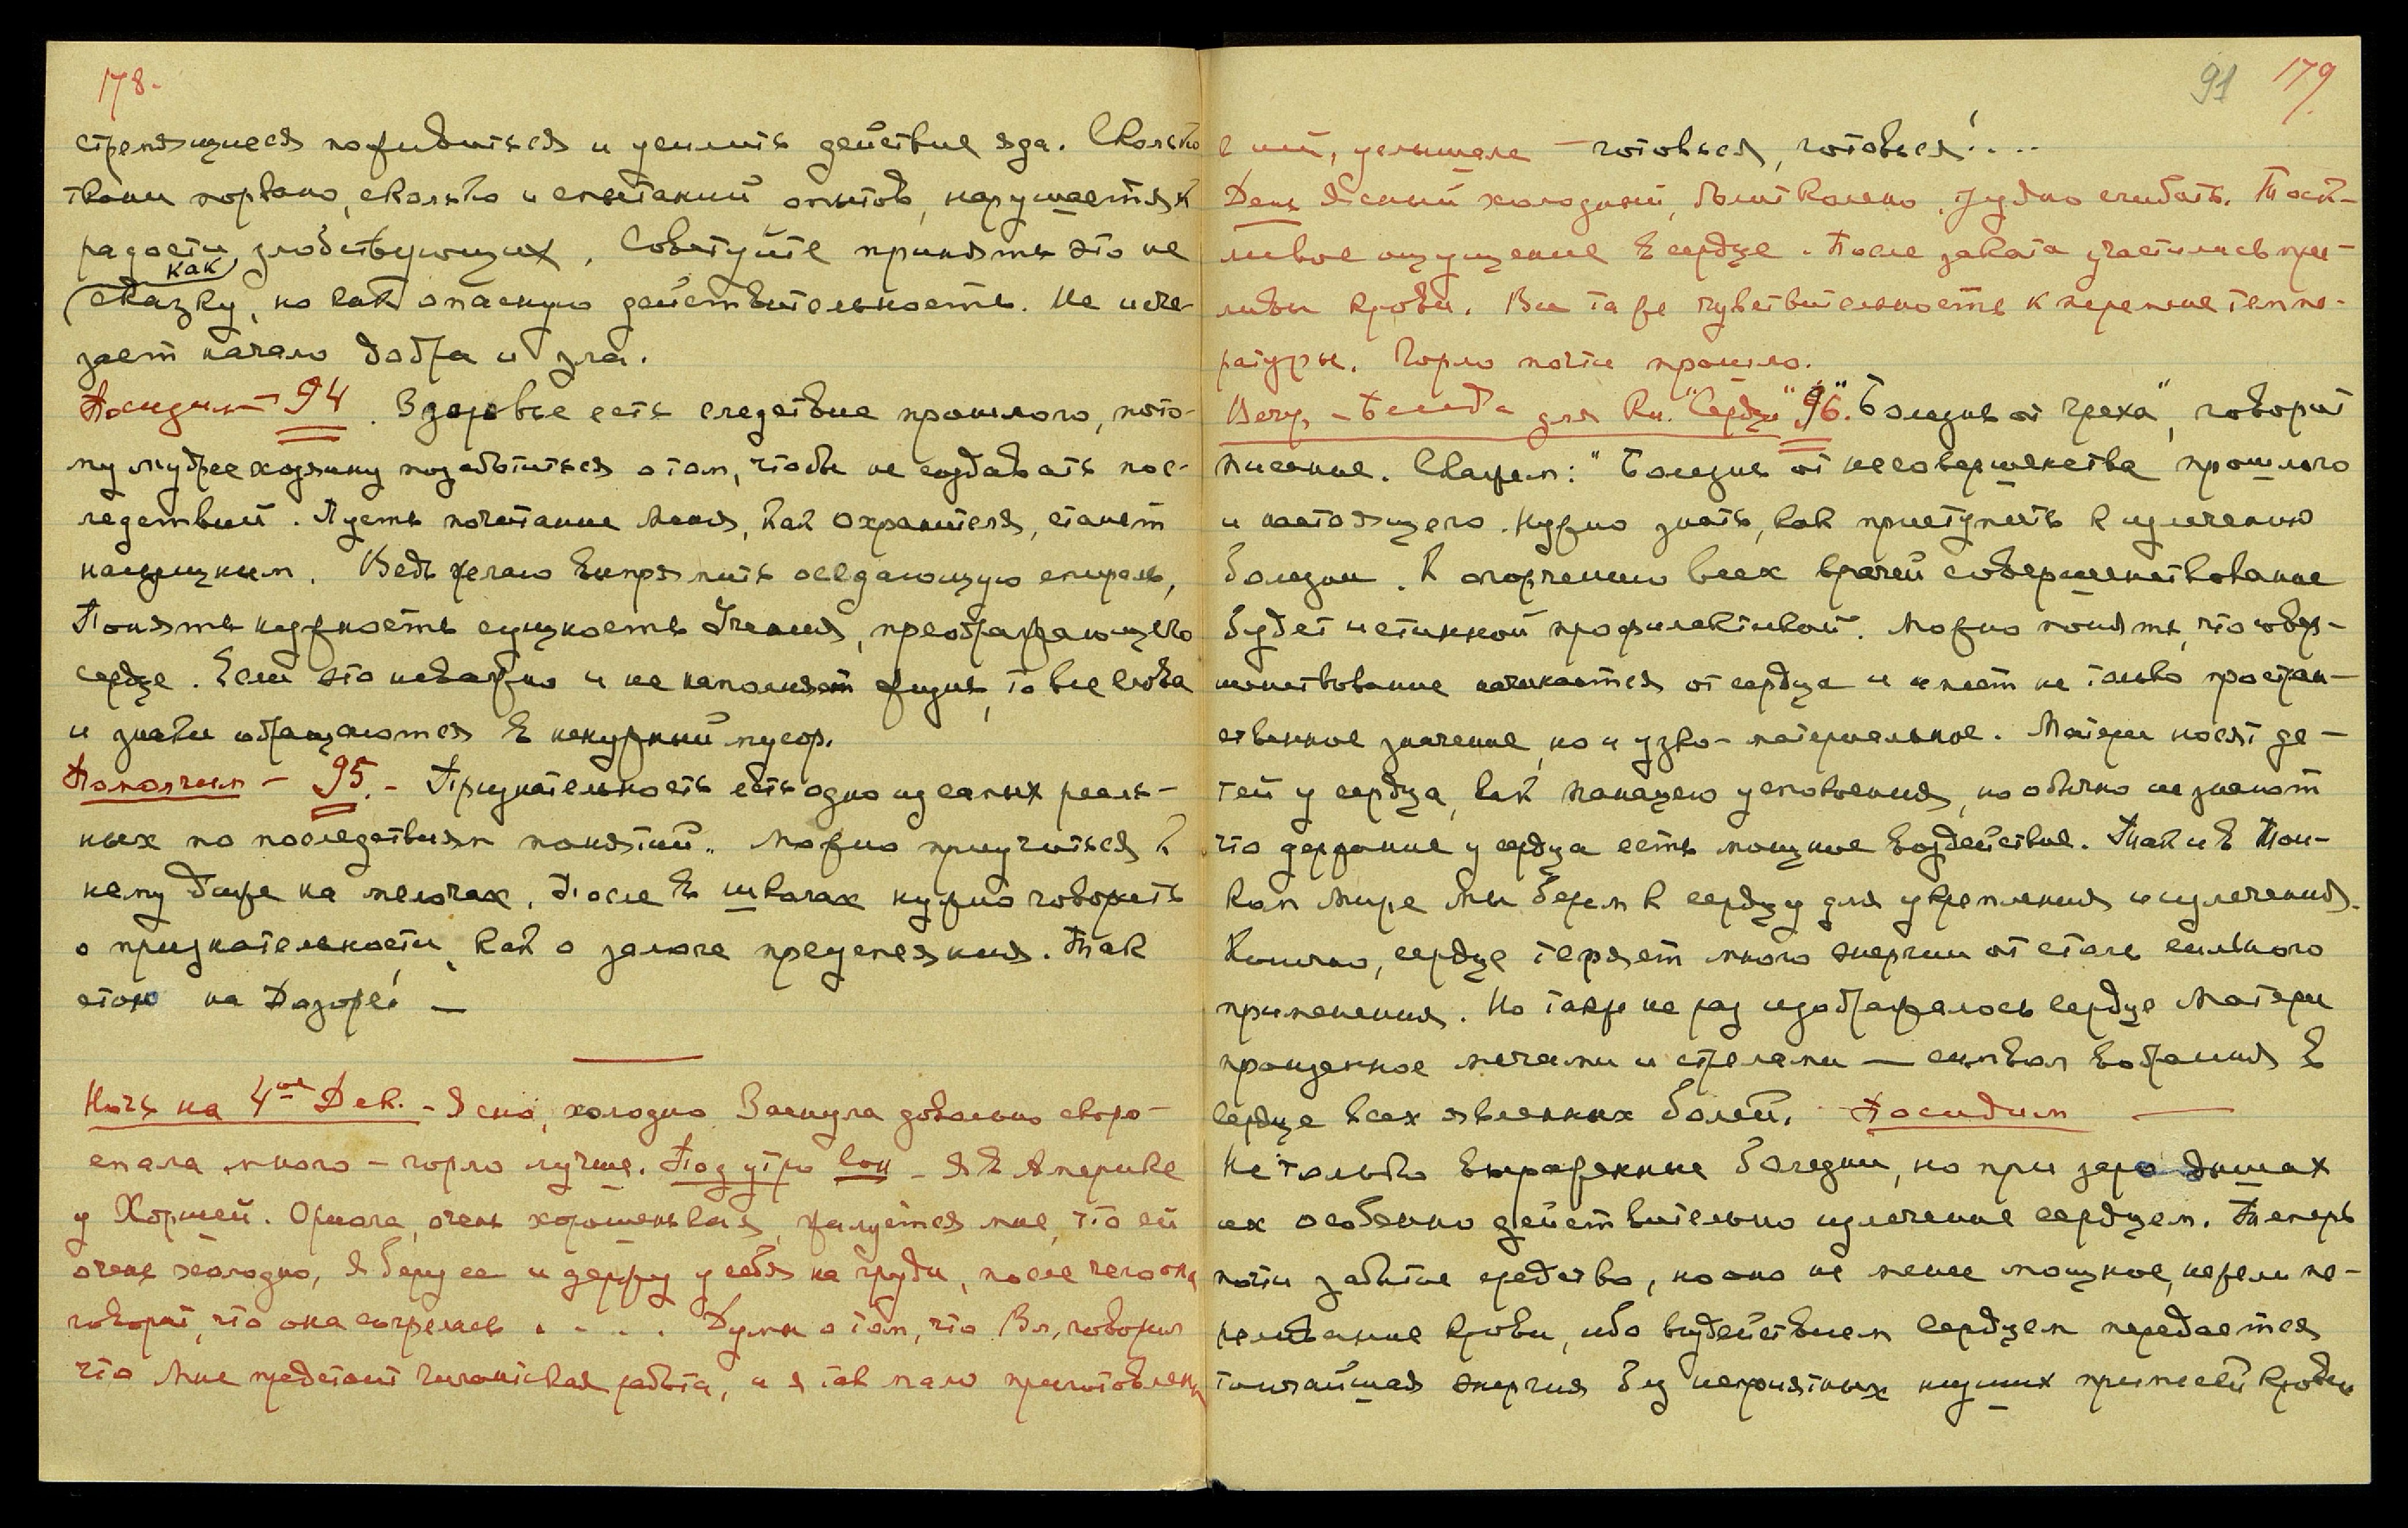 178.
стремящиеся поживиться и усилить действие яда. Сколько
ткани порвано, сколько испытаний опытов, нарушается к
радости злобствующих. Советуйте принять это не
как
сказку, но как опасную действительность. Не исче-
зает начало добра и зла.
Посидим 94. Здоровье есть следствие прошлого, пото-
му мудрее хозяину позаботиться о том, чтобы не создавать пос-
ледствий. Пусть почитание Меня, как охранителя, станет
насущным. Ведь желаю выпрямить оседающую спираль,
Понять нужность сущность Учения, преображающего
сердце. Если это неважно и не наполняет жизнь, то все слова
и знаки обращаются в ненужный мусор.
Помолчим – 95. – Признательность есть одно из самых реаль-
ных по последствиям понятий. Можно приучиться к
нему даже на мелочах. После в школах нужно говорить
о признательности, как о залоге преуспеяния. Так
стою на Дозоре! —
Ночь на 4ое Дек. – Ясно, холодно Заснула довольно скоро –
спала много – горло лучше. Под утро сон – Я в Америке
у Хоршей. Ориола, очень хорошенькая, жалуется мне, что ей
очень холодно, я беру ее и держу у себя на груди, после чего она
говорит, что она согрелась . . . . Думы о том, что Вл. говорил
что мне предстоит гигантская работа, и я так мало приготовлена
91 179.
к ней, услышала — готовься, готовься! . . .
День Ясный холодный, болит колено, трудно сгибать. Тоск-
ливое ощущение в сердце. После заката участились при-
ливы крови. Все та же чувствительность к перемене темпе-
ратуры. Горло почти прошло.
Веч. – Беседа для Кн. "Сердце" 96. "Болезнь от греха", говорит
писание. Скажем: "Болезнь от несовершенства прошлого
и настоящего. Нужно знать, как приступить к излечению
болезни. К огорчению всех врачей совершенствование
будет истинной профилактикой. Можно понять, что совер-
шенствование начинается от сердца и имеет не только простран-
ственное значение, но и узко-материальное. Матери носят де-
тей у сердца, как панацею успокоения, но обычно не знают
что держание у сердца есть мощное воздействие. Так и в Тон-
ком Мире Мы берем к сердцу для укрепления и излечения.
Конечно, сердце теряет много энергии от столь сильного
применения. Но также не раз изображалось сердце Матери
пронзенное мечами и стрелами — символ вобрания в
сердце всех явленных болей. Посидим —
Не только выраженные болезни, но при зародышах
их особенно действительно излечение сердцем. Теперь
почти забытое средство, но оно не менее мощное, нежели пе-
реливание крови, ибо воздействием сердцем передается
тончайшая энергия без неприятных низших примесей крови